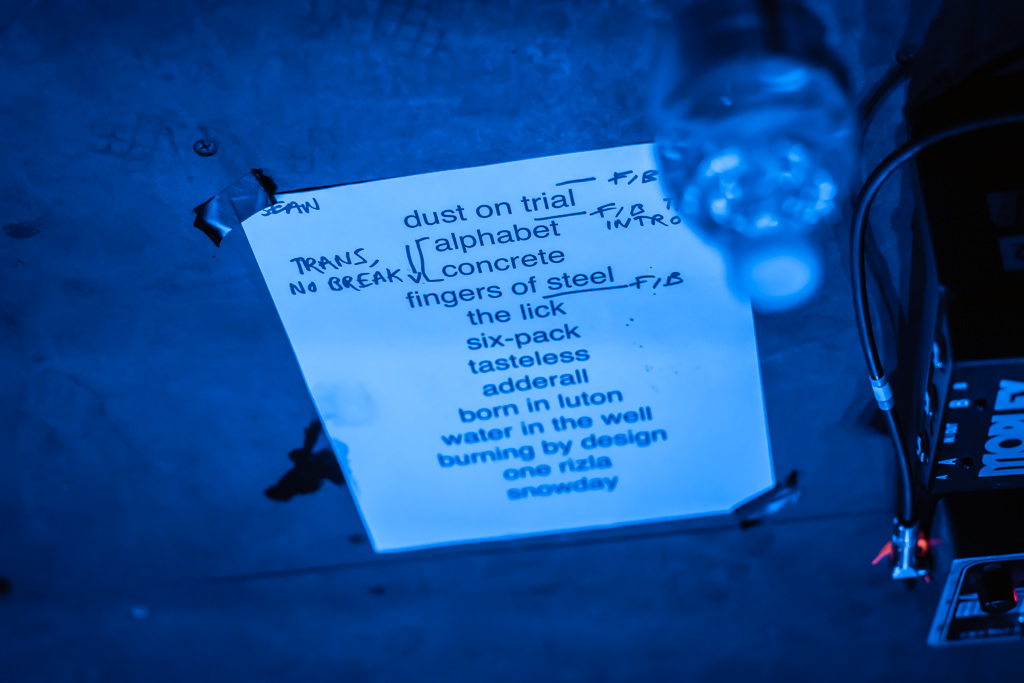 SEAN
dust on trial — F/B
alphabet — F/B
INTRO
TRANS,
NO BREAK
concrete
fingers of steel — F/B
the lick
six-pack
tasteless
adderall
born in luton
water in the well
burning by design
one rizla
snowday
MORLEY
A A B B